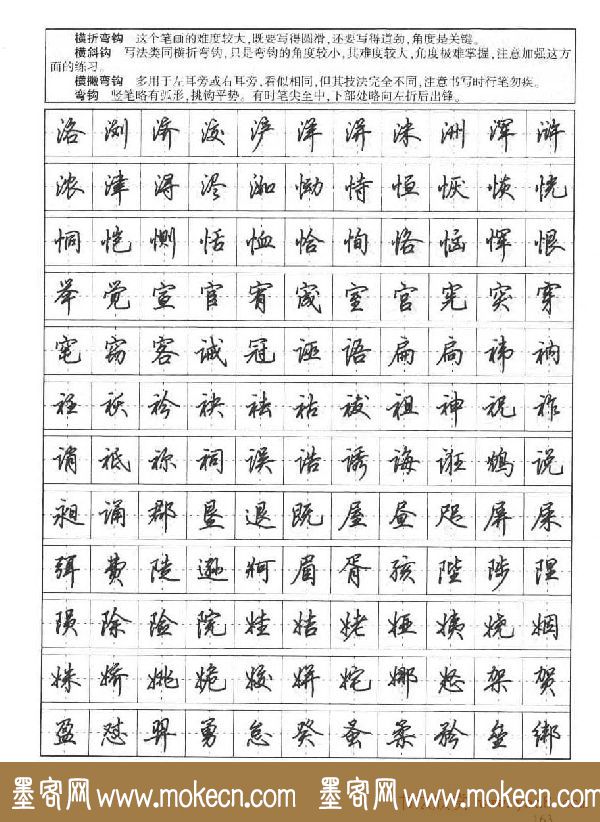 横折弯钩 这个笔画的难度较大,既要写得圆滑,还要写得道劲,角度是关键。
横斜钩 写法类同横折弯钩,只是弯钩的角度较小,其难度较大,角度极难掌握,注意加强这方
面的练习。
横撇弯钩 多用于左耳旁或右耳旁,看似相同,但其技法完全不同,注意书写时行笔勿疾。
弯钩 竖笔略有弧形,挑钩平势。有时笔尖至中,下部处略向左折后出锋。
洛 浏 济 浚 浐 洋 洴 洣 洲 浑 浒
浓 津 浔 浕 洳 恸 恃 恒 恹 恢 恍
恫 恺 恻 恬 恤 恰 恂 恪 恼 恽 恨
举 觉 宣 宦 宥 宬 室 宫 宪 突 穿
窀 窃 客 诫 冠 诬 语 扁 扃 袆 衲
衽 袄 衿 袂 祛 祜 祓 祖 神 祝 祚
诮 祗 祢 祠 误 诰 诱 诲 诳 鸩 说
昶 诵 郡 垦 退 既 屋 昼 咫 屏 屎
弭 费 陡 逊 牁 眉 胥 孩 陛 陟 陧
陨 除 险 院 娃 姞 姥 娅 姨 娆 姻
姝 娇 姚 姽 姣 姘 姹 娜 怒 架 贺
盈 怼 羿 勇 怠 癸 蚤 柔 矜 垒 绑
墨客网 www.mokecn.com 墨客网 www.mokecn.com
163